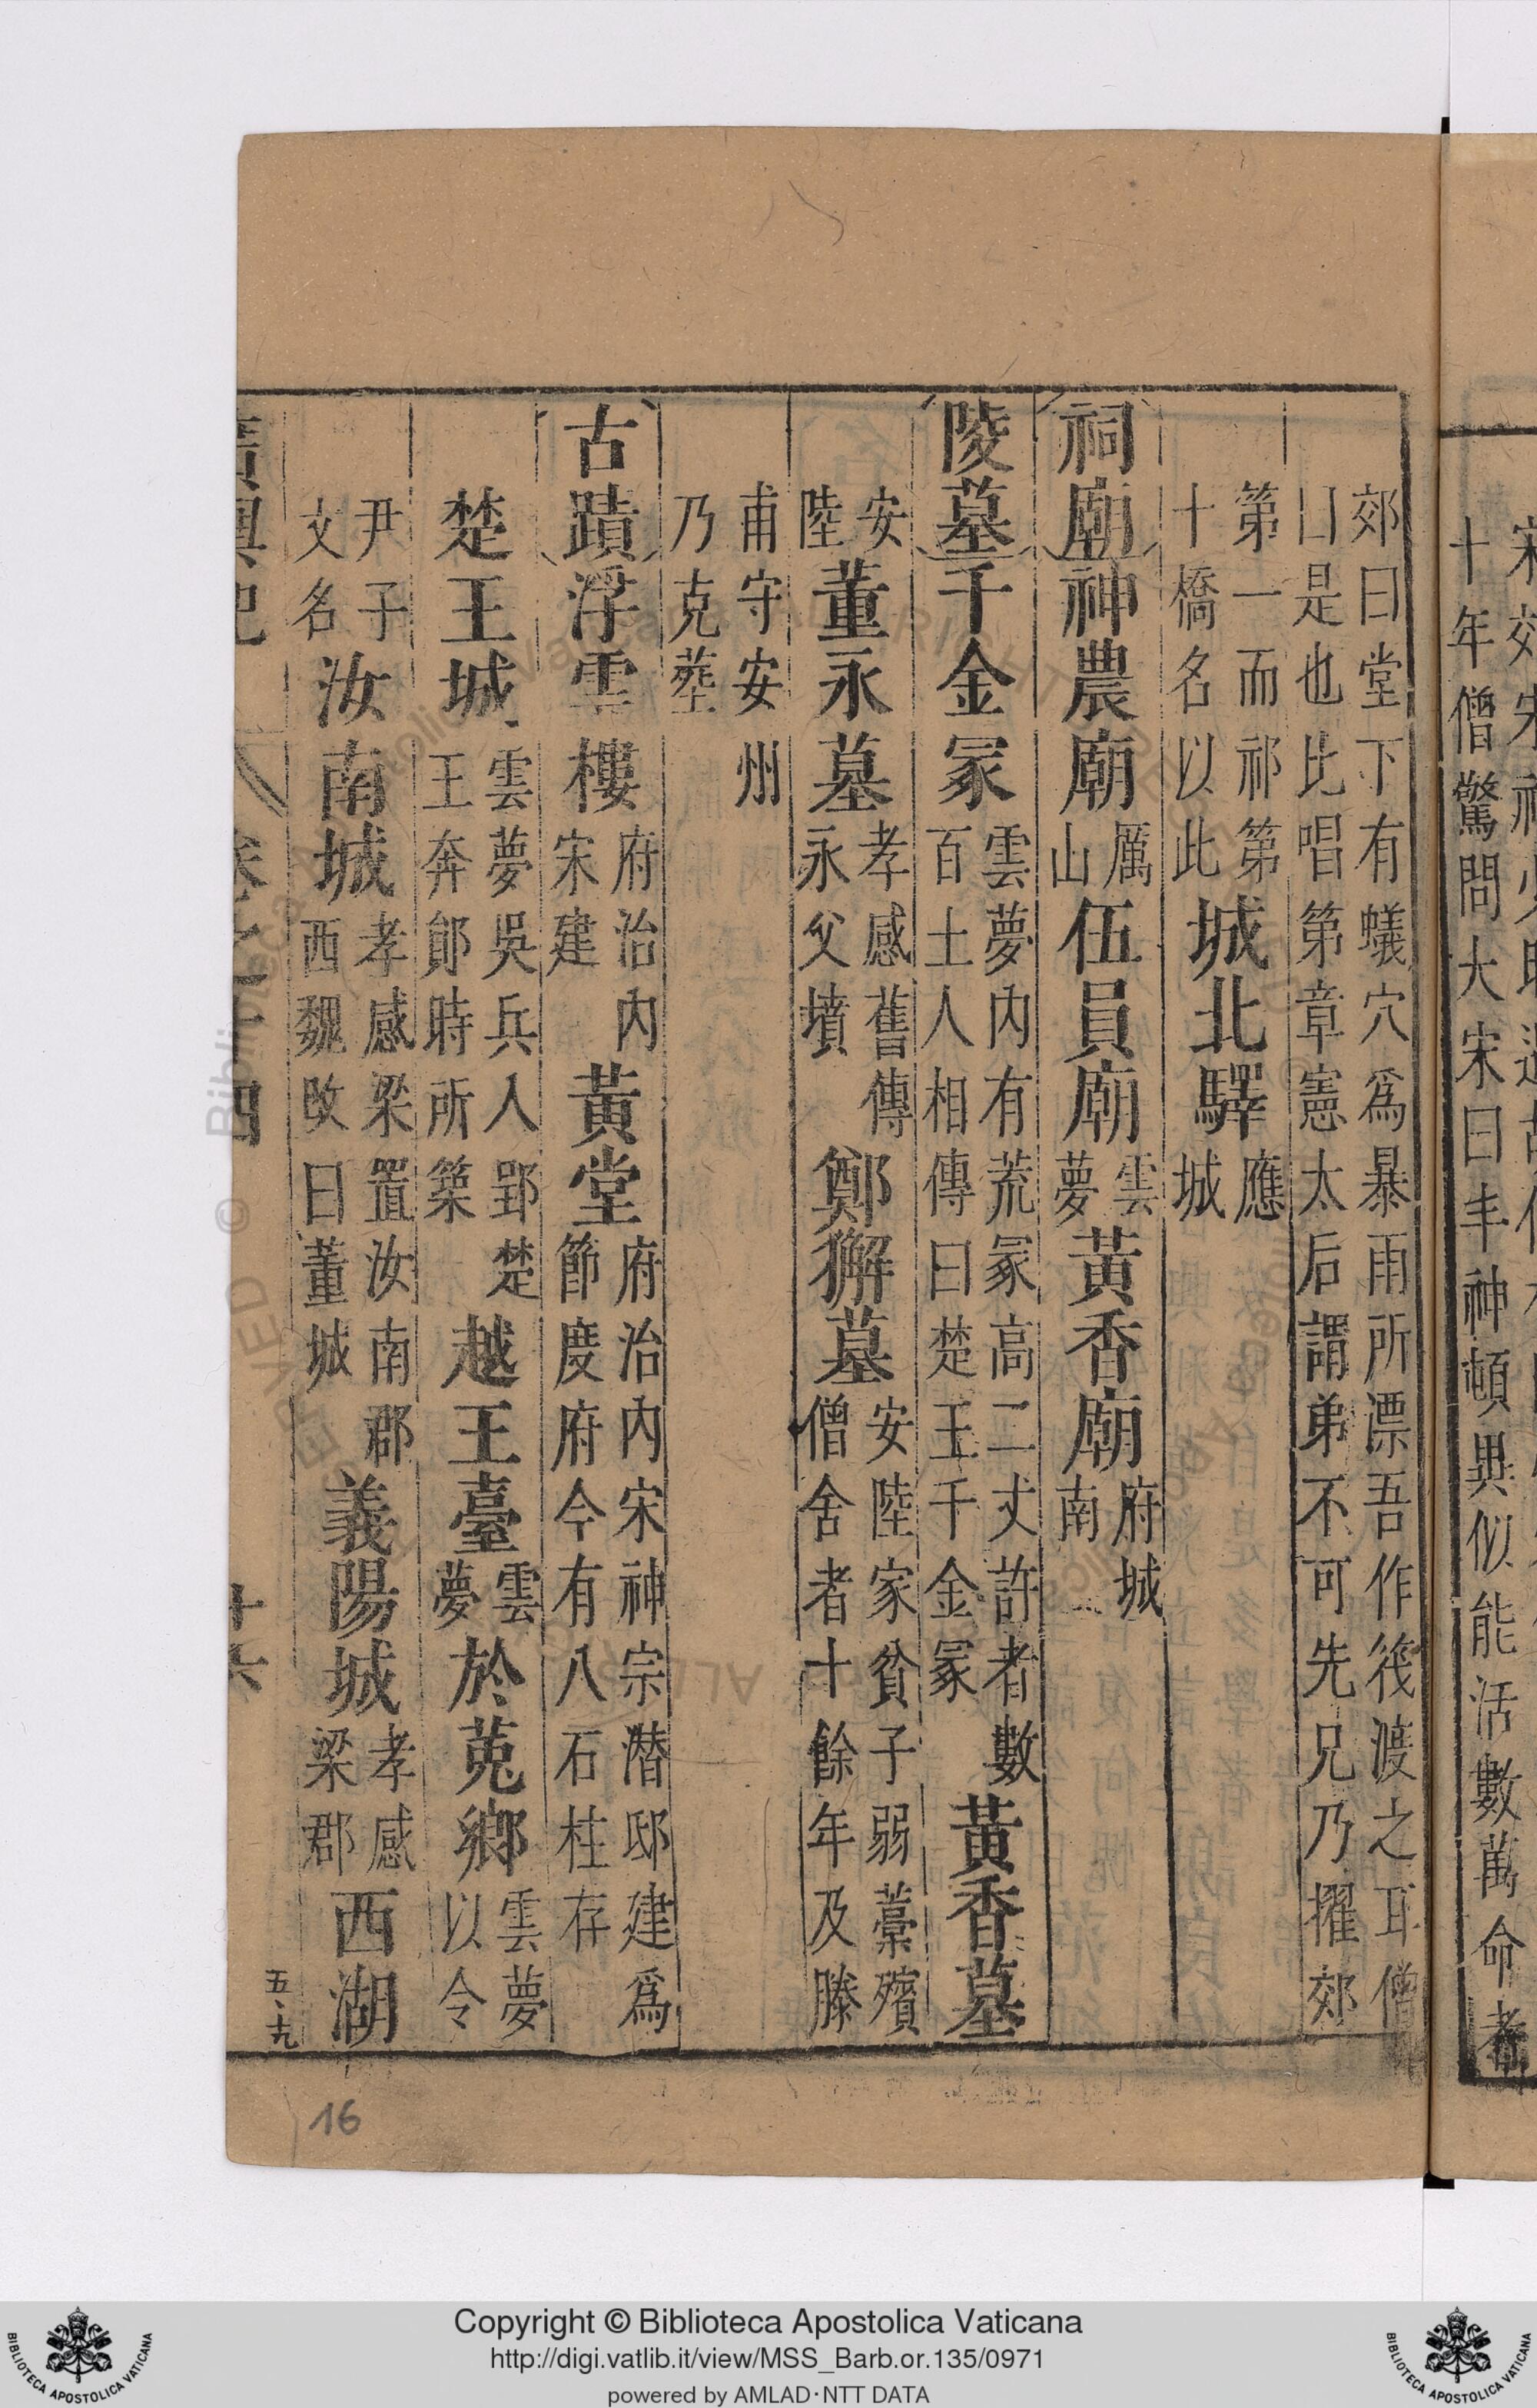 郊曰堂下有蟻穴爲暴雨所漂吾作筏渡之耳僧
曰是也比唱第章憲太后謂弟不可先兄乃擢郊
第一而祁第
十橋名以此
城北驛
應
城
祠廟神農廟
厲
山
伍員廟
雲
夢
黃香廟
府城
南
陵墓千金冢
雲夢內有荒冢高二丈許者數
百土人相傳曰楚王千金冢
黃香墓
安
陸
董永墓
孝感舊傳
永父墳
鄭獬墓
安陸家貧子弱藁殯
僧舍者十餘年及滕
甫守安州
乃克塟
古蹟浮雲樓
府治內
宋建
黃堂
府治內宋神宗潜邸建爲
節度府今有八石柱存
楚王城
雲夢吳兵入郢楚
王奔鄖時所築
越王臺
雲
夢
於菟鄉
雲夢
以令
尹子
文名
汝南城
孝感梁置汝南郡
西魏改曰董城
義陽城
孝感
梁郡
西湖
十六
五十九
16
十年僧驚問大宋曰丰神頓異似能活數萬命者
Copyright © Biblioteca Apostolica Vaticana
http://digi.vatlib.it/view/MSS_Barb.or.135/0971
powered by AMLAD·NTT DATA
BIBLIOTECA APOSTOLICA VATICANA
BIBLIOTECA APOSTOLICA VATICANA